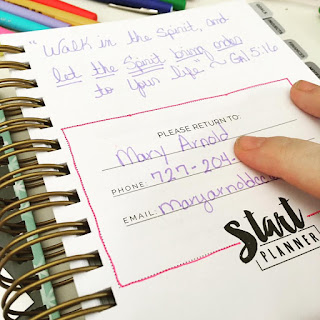 "Walk in the Spirit, and
let the Spirit bring order
to your life" ~ Gal 5:16
PLEASE RETURN TO:
Mary Arnold
PHONE: 727-204-
EMAIL: maryarnold
Start
PLANNER